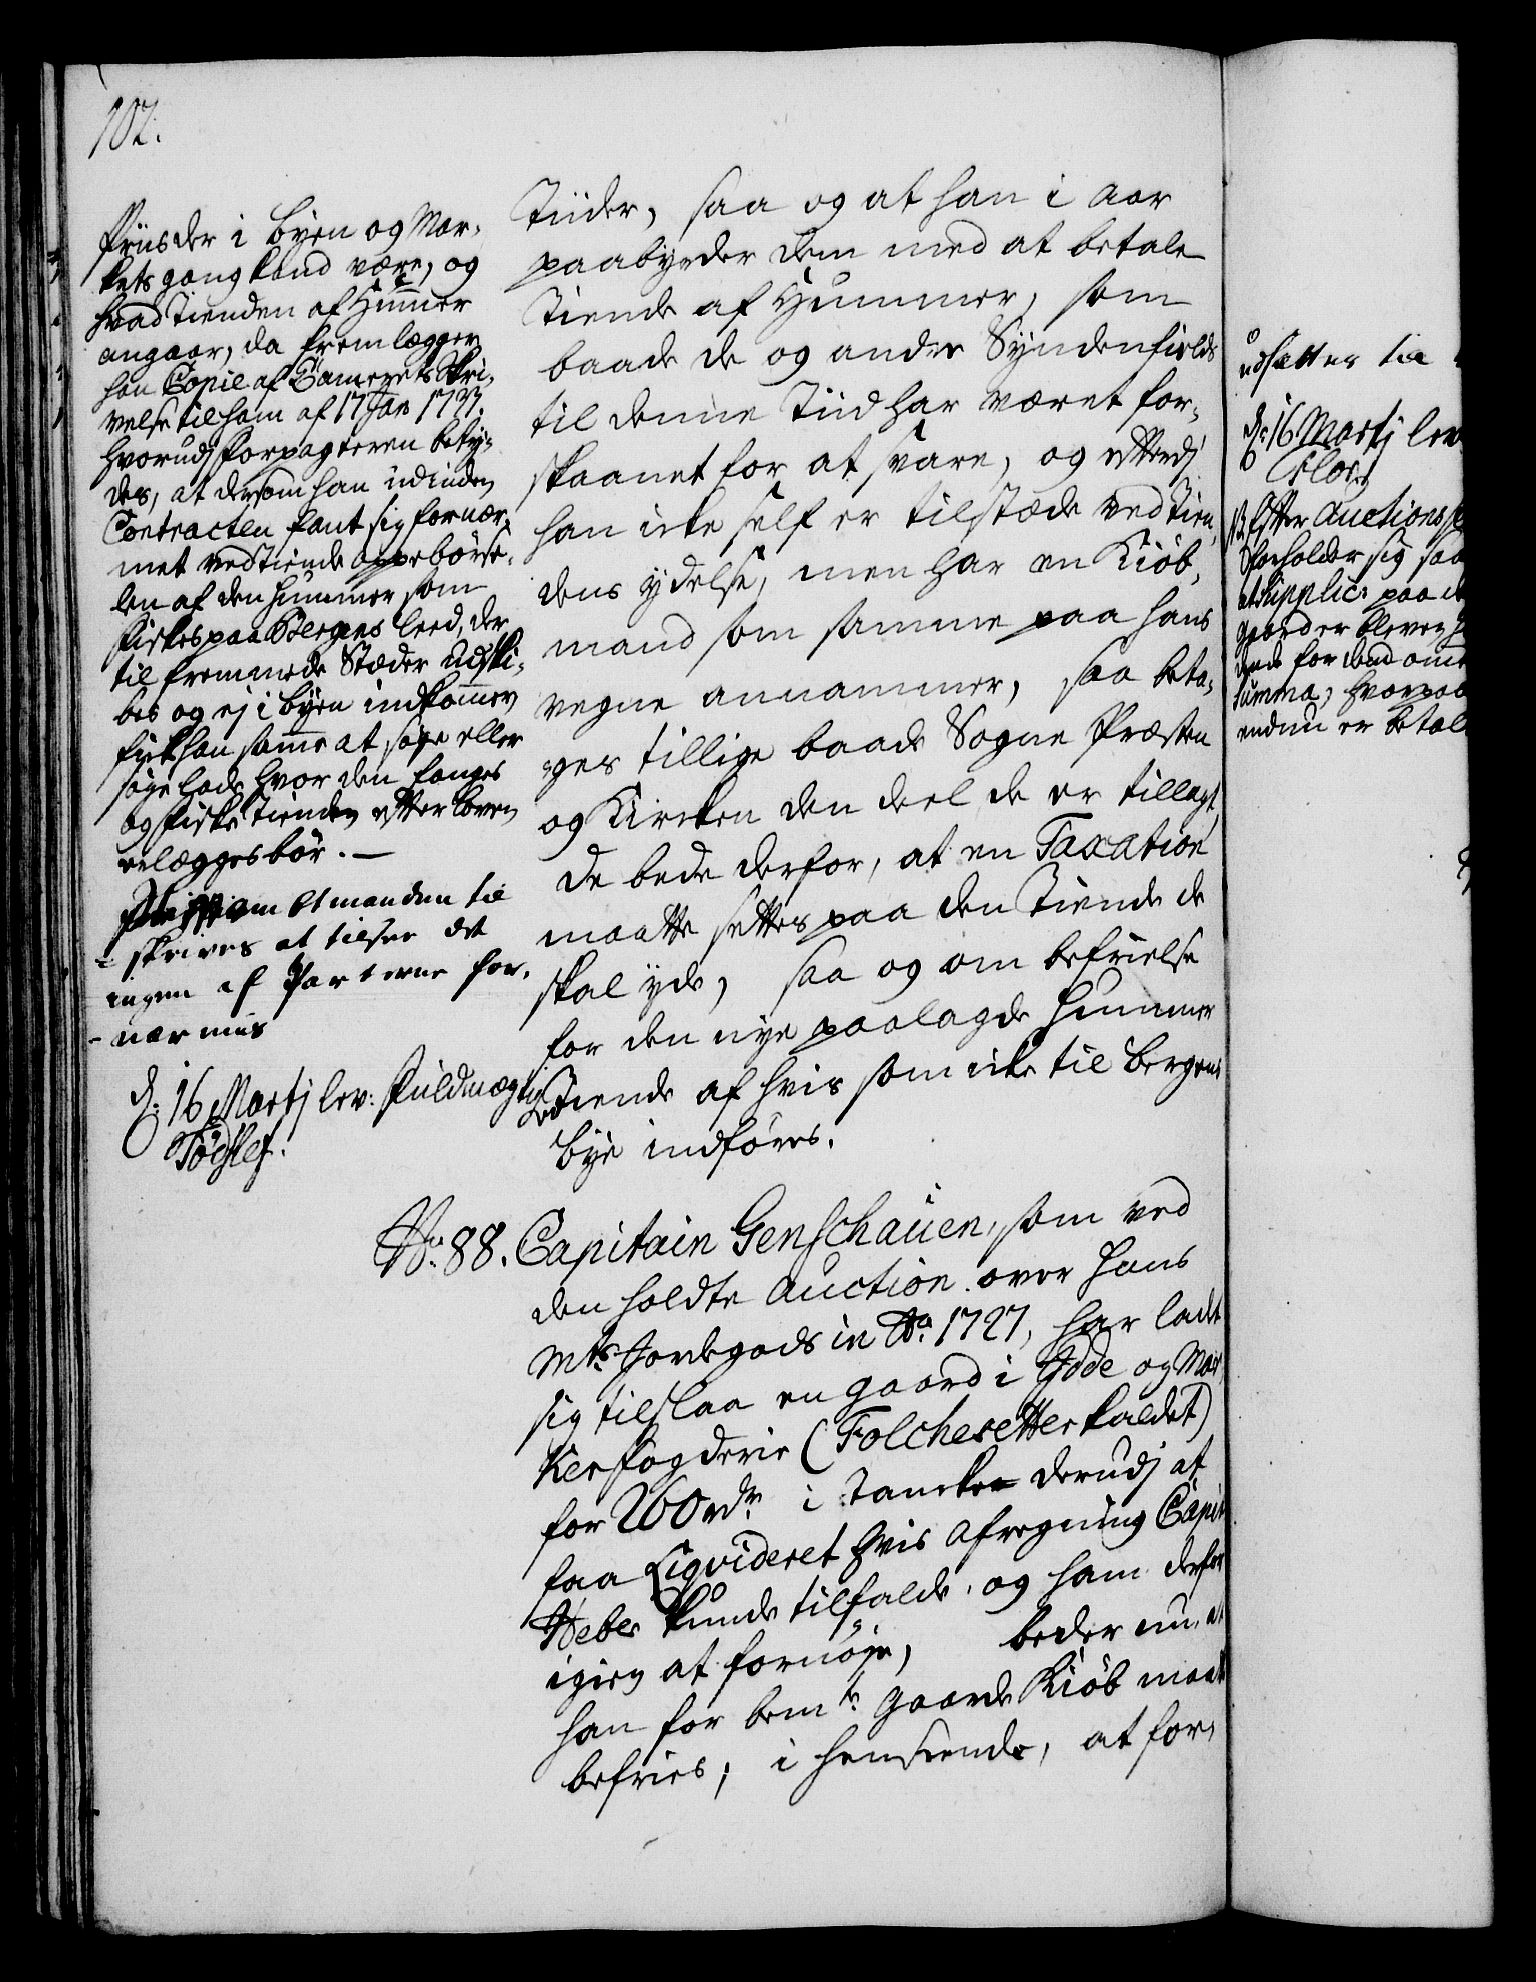 102.
Priis der i byen og Mar-
kets gang kand være, og
hvad Tienden af Hummer
angaar, da fremlægger
han Copie af Camerets Skri-
velse til ham af 17 Jan 1727.
hvorudj Forpagteren bety-
des, at dersom han udinden
Contracten fant sig fornær-
met ved Tiende oppebørse-
len af den Hummer som
fiskes paa Bergens leed, der
til fremmede Stæder udski-
bes og ej i byen indkommer
fik han samme at søge eller
søge lade hvor den fanges
og fiske Tienden efter loven
erlægges bør. —
Stiftamtmanden til
skrives at tilsee det
ingen af Parterne for-
nærmis
d: 16 Martj lev: Fuldmægtig
Tødslef.
Tiider, saa og at han i aar
paabyrder dem med at betale
Tiende af Hummer, som
baade de og andre Syndenfields
til denne Tiid har været for-
skaanet for at svare, og efterdj
han icke self er tilstæde ved Tien-
dens ydelse, men har en Kiøb-
mand som samme paa hans
vegne annammer, saa beta-
ges tillige baade Sogne Præsten
og Kircken den deel de er tillagt,
De bede derfor, at en Taxation
maatte settes paa den Tiende de
skal yde, saa og om befrielse
for den nye paalagde Hummer
Tiende af hvis som icke til Bergens
bye indføres.
No. 88. Capitain Genschauen, som ved
den holdte Auction over Hans
Mts Jordegods in Ao. 1727, har ladt
sig tilslaa en gaard i Idde og Mar-
ker fogderie (Folchesetter kaldet)
for 260 rdr i Tancke derudj at
faa Liqvideret hvis afregning Capit
Weber kunde tilfalde, og ham derfor
igien at fornøje, beder nu at
han for bemte gaards Kiøb maat
befries, i henseende, at for-
udsættes til
d: 16 Martj lev
Flor
Efter Auctions
forholder sig saa
at Supplic: paa
gaard er bleven
dende for dend om
Summa, hvorpaa
endnu er betal